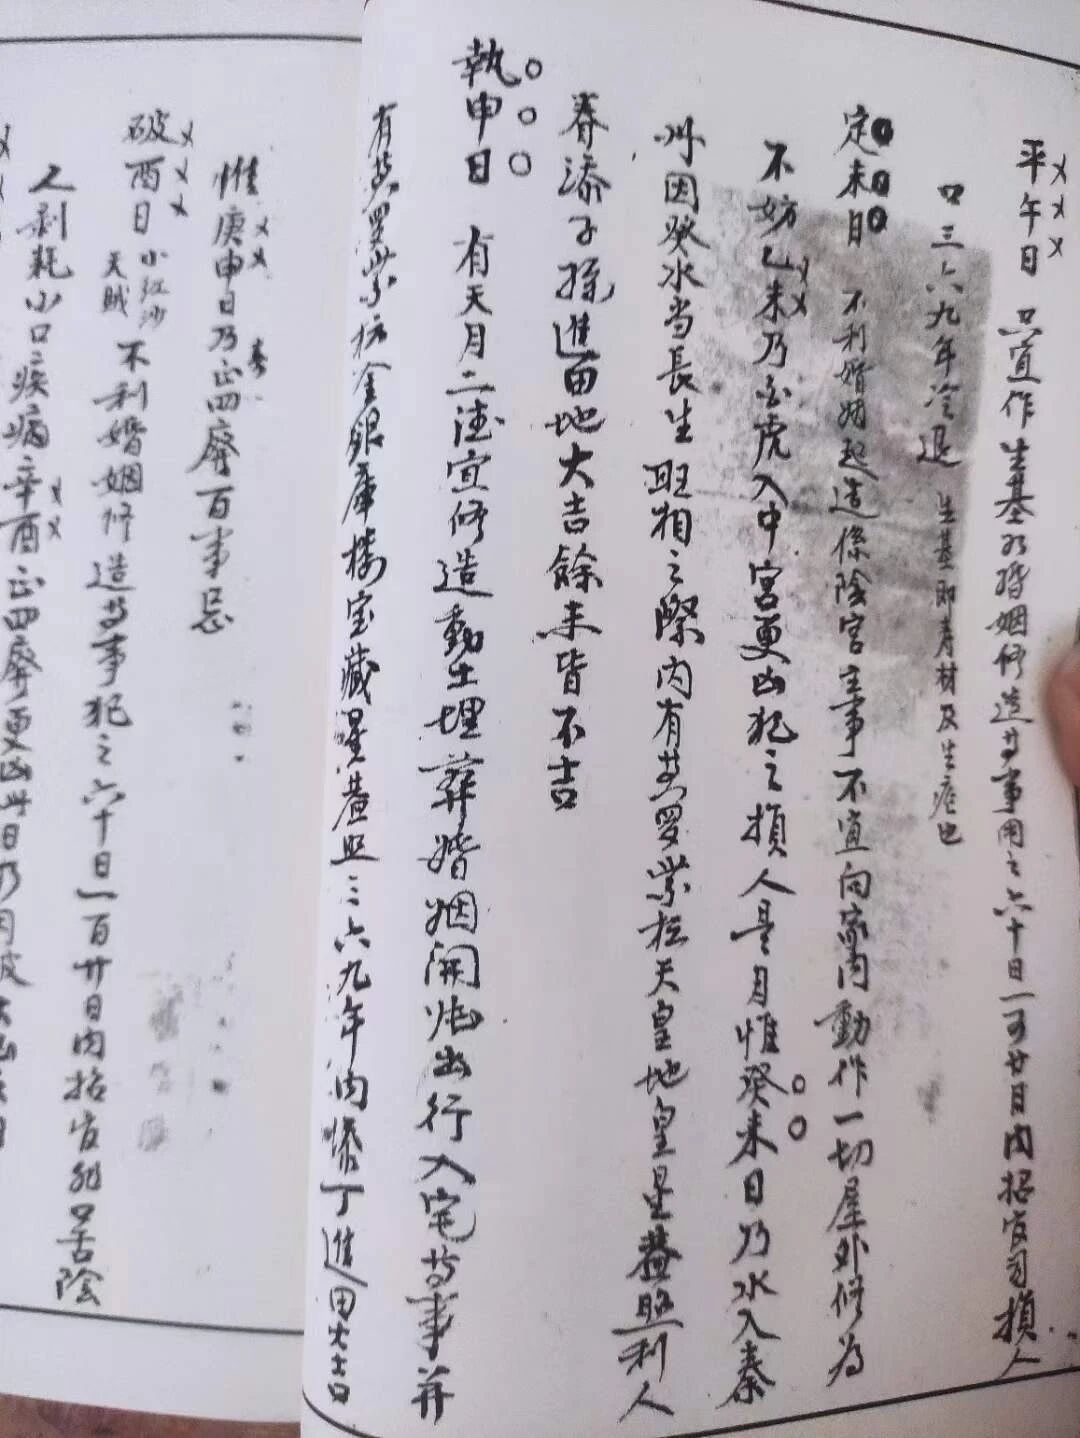 平午日 只宜作生基 婚姻修造等事用之六十日一百廿日内招官司損人
口三六九年冷退 生基即寿材及生庄也
定未日 不利婚姻起造係陰宫主事不宜向家内動作一切屋外修为
不妨乙未乃白虎入中宫更凶犯之損人是月惟癸未日乃水入秦
州因癸水当長生旺相之際内有黄罗紫枟天皇地皇星盖照利人
春添子孫進田地大吉餘未皆不吉
執申日 有天月二德宜修造動土埋葬婚姻開炉出行入宅等事并
有黄罗紫枟金銀庫楼宝藏星盖照三六九年内添丁進田大吉
惟庚申日乃正四廢百事忌
春
破酉日 小红沙 天賊 不利婚姻修造等事犯之六十日一百廿日内招官非口舌陰
人剥耗小口疾病辛酉正四廢更凶此日乃月破